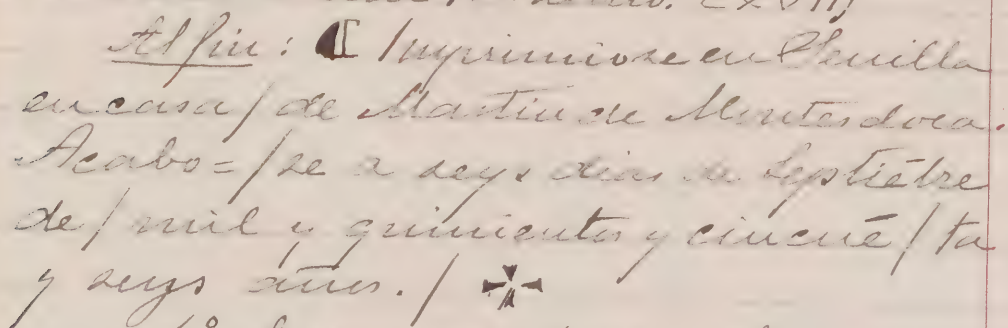 Al fin: ¶ Imprimiose en Seuilla
en casa / de Martin de Montesdoca.
Acabo= / se a seys dias de Septiẽbre
de / mil y quinientos y cincuẽ / ta
y seys años. / ✠